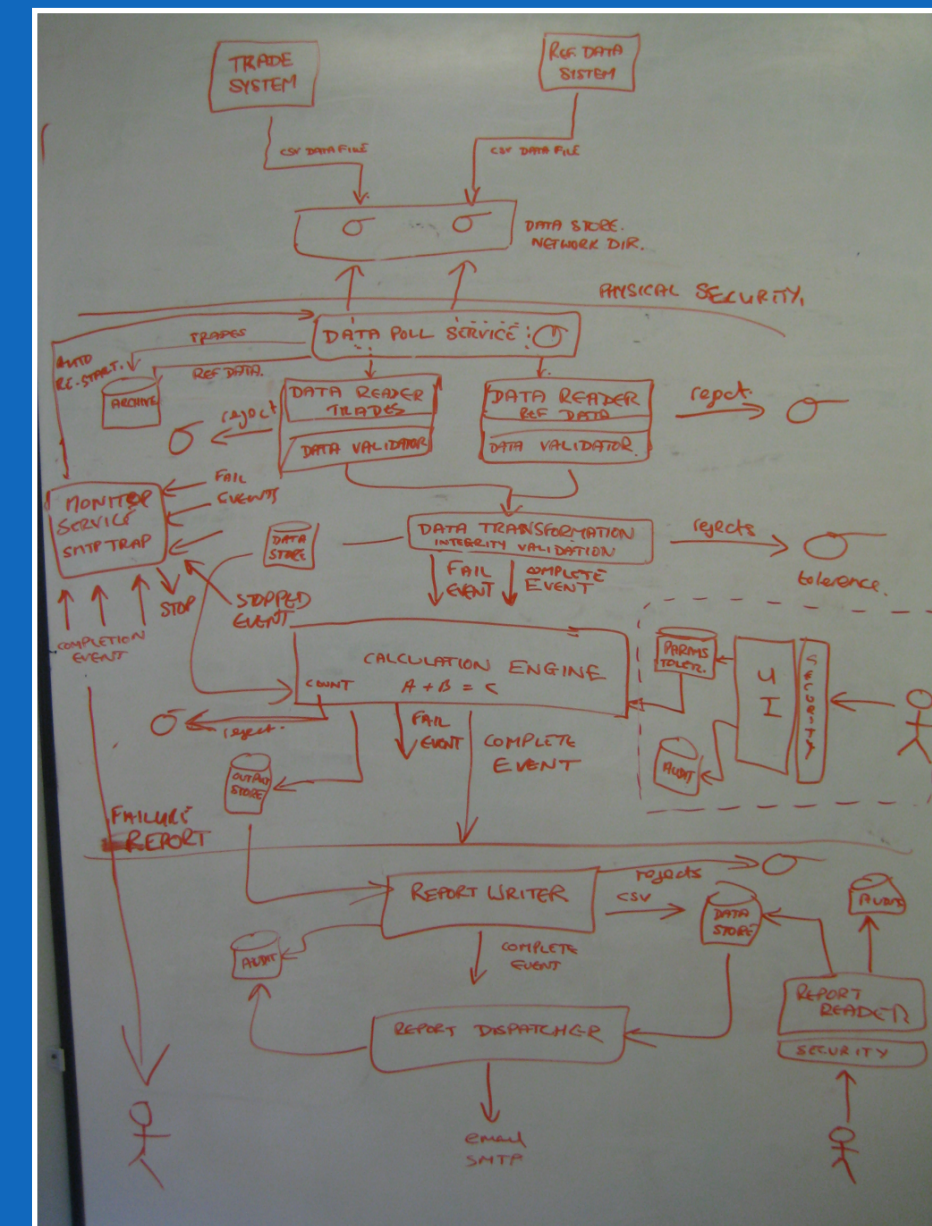 TRADE
SYSTEM
REF. DATA
SYSTEM
CSV DATA FILE
CSV DATA FILE
DATA STORE.
NETWORK DIR.
PHYSICAL SECURITY.
DATA POLL SERVICE
TRADES
AUTO
RE-START.
REF DATA.
ARCHIVE
DATA READER
TRADES
DATA VALIDATOR
DATA READER
REF DATA
DATA VALIDATOR.
reject
reject.
FAIL
EVENTS
MONITOR
SERVICE
SMTP TRAP
DATA
STORE
DATA TRANSFORMATION
INTEGRITY VALIDATION
rejects
tolerence.
FAIL
EVENT
COMPLETE
EVENT
STOP
STOPPED
EVENT
COMPLETION
EVENT
CALCULATION ENGINE
A + B = C
COUNT
reject.
FAIL
EVENT
COMPLETE
EVENT
PARAMS
TOLER.
UI
SECURITY
AUDIT
OUTPUT
STORE
FAILURE
REPORT
REPORT WRITER
rejects
CSV
DATA
STORE
AUDIT
AUDIT
COMPLETE
EVENT
REPORT DISPATCHER
REPORT
READER
SECURITY
email
SMTP